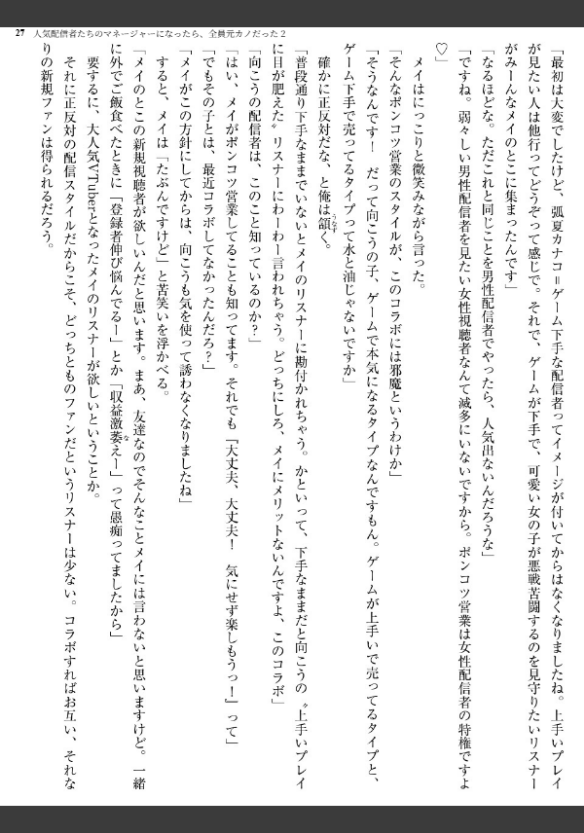 27 人気配信者たちのマネージャーになったら、全員元カノだった2
「最初は大変でしたけど、弧夏カナコ=ゲーム下手な配信者ってイメージが付いてからはなくなりましたね。上手いプレイ
が見たい人は他行ってどうぞって感じで。それで、ゲームが下手で、可愛い女の子が悪戦苦闘するのを見守りたいリスナー
がみーんなメイのとこに集まったんです」
「なるほどな。ただこれと同じことを男性配信者でやったら、人気出ないんだろうな」
「ですね。弱々しい男性配信者を見たい女性視聴者なんて滅多にいないですから。ポンコツ営業は女性配信者の特権ですよ
♡」
メイはにっこりと微笑みながら言った。
「そんなポンコツ営業のスタイルが、このコラボには邪魔というわけか」
「そうなんです! だって向こうの子、ゲームで本気になるタイプなんですもん。ゲームが上手いで売ってるタイプと、
ゲーム下手で売ってるタイプって水と油じゃないですか」
確かに正反対だな、と俺は頷く。
「普段通り下手なままでいないとメイのリスナーに勘付かれちゃう。かといって、下手なままだと向こうの〝上手いプレイ
に目が肥えた〟リスナーにわーわー言われちゃう。どっちにしろ、メイにメリットないんですよ、このコラボ」
「向こうの配信者は、このこと知っているのか?」
「はい、メイがポンコツ営業してることも知ってます。それでも『大丈夫、大丈夫! 気にせず楽しもうっ!』って」
「でもその子とは、最近コラボしてなかったんだろ?」
「メイがこの方針にしてからは、向こうも気を使って誘わなくなりましたね」
すると、メイは「たぶんですけど」と苦笑いを浮かべる。
「メイのとこの新規視聴者が欲しいんだと思います。まあ、友達なのでそんなことメイには言わないと思いますけど。一緒
に外でご飯食べたときに『登録者伸び悩んでるー』とか『収益激萎えー』って愚痴ってましたから」
要するに、大人気VTuberとなったメイのリスナーが欲しいということか。
それに正反対の配信スタイルだからこそ、どっちとものファンだというリスナーは少ない。コラボすればお互い、それな
りの新規ファンは得られるだろう。